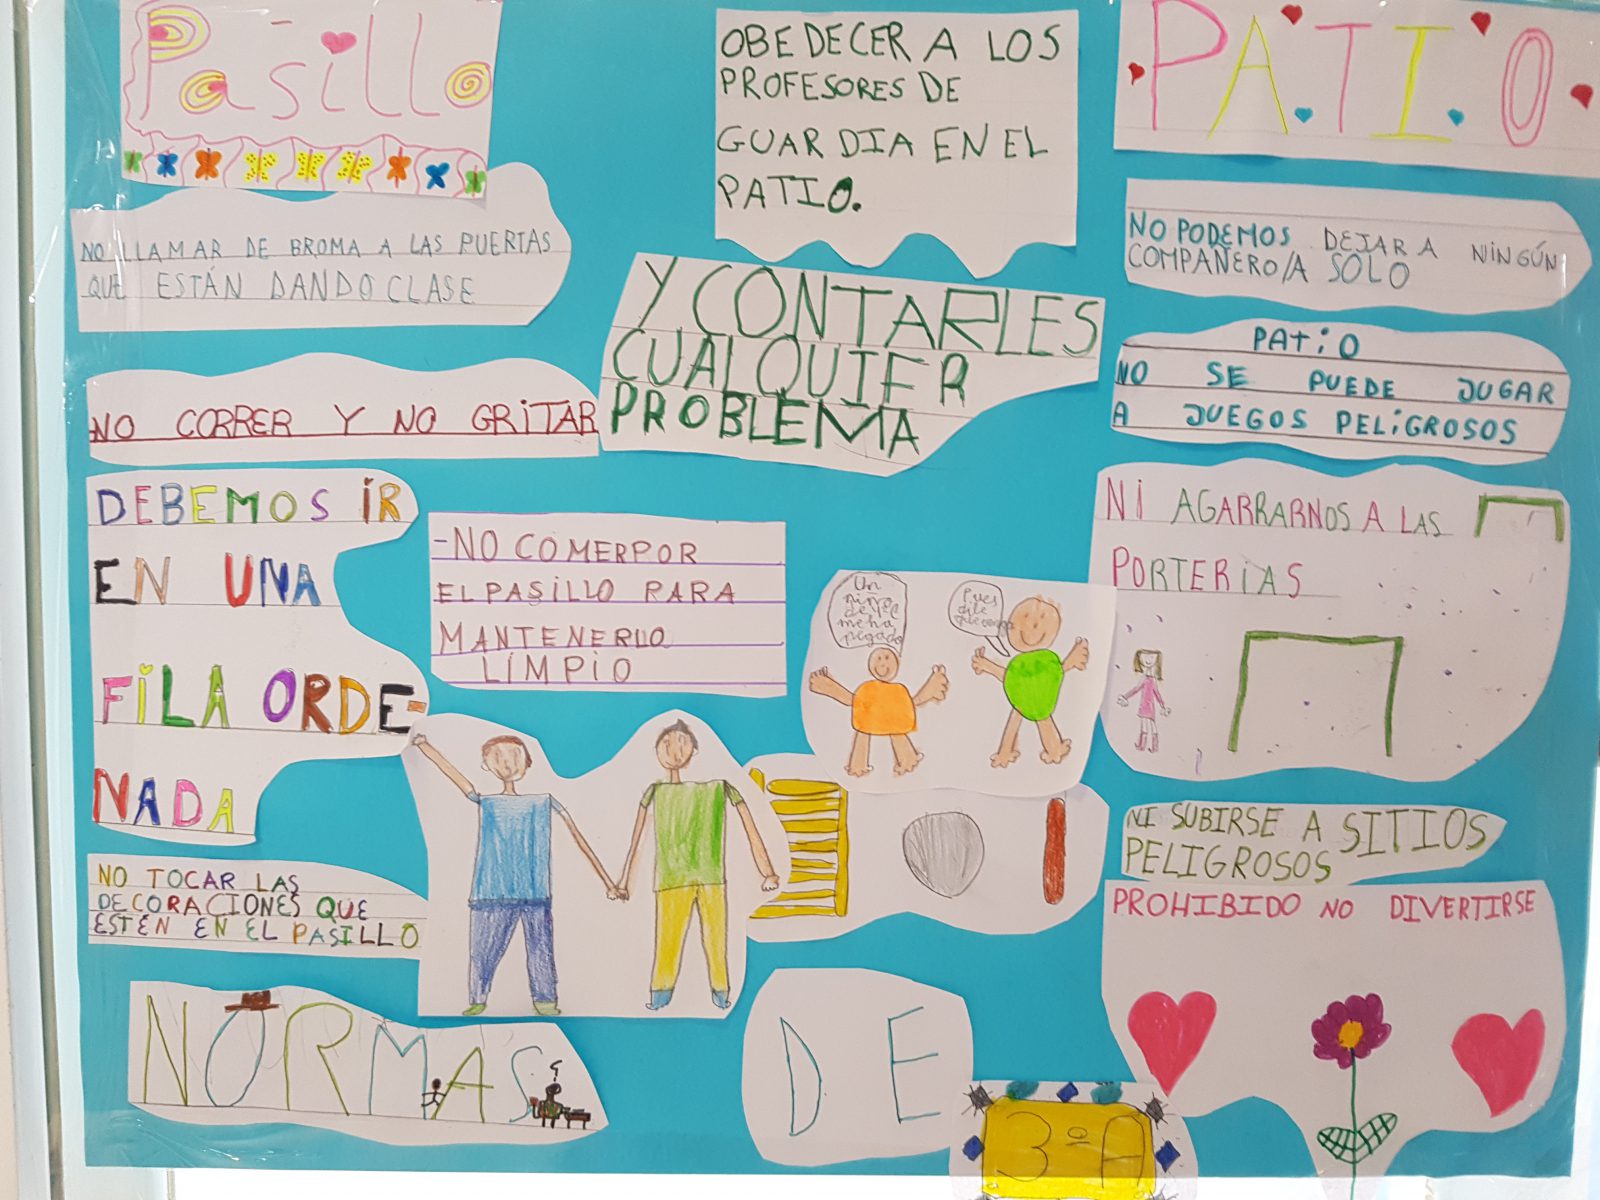 Pasillo
NO LLAMAR DE BROMA A LAS PUERTAS
QUE ESTÁN DANDO CLASE
NO CORRER Y NO GRITAR
DEBEMOS IR
EN UNA
FILA ORDE-
NADA
NO TOCAR LAS
DECORACIONES QUE
ESTÉN EN EL PASILLO
-NO COMER POR
EL PASILLO PARA
MANTENERLO
LIMPIO
OBEDECER A LOS
PROFESORES DE
GUARDIA EN EL
PATIO.
Y CONTARLES
CUALQUIER
PROBLEMA
Un
niño
de
me ha
pegado
Pues
dile
que venga
PATIO
NO PODEMOS DEJAR A NINGÚN
COMPAÑERO/A SOLO
PATIO
NO SE PUEDE JUGAR
A JUEGOS PELIGROSOS
NI AGARRARNOS A LAS
PORTERIAS
NI SUBIRSE A SITIOS
PELIGROSOS
PROHIBIDO NO DIVERTIRSE
NORMAS
DE
3ºA